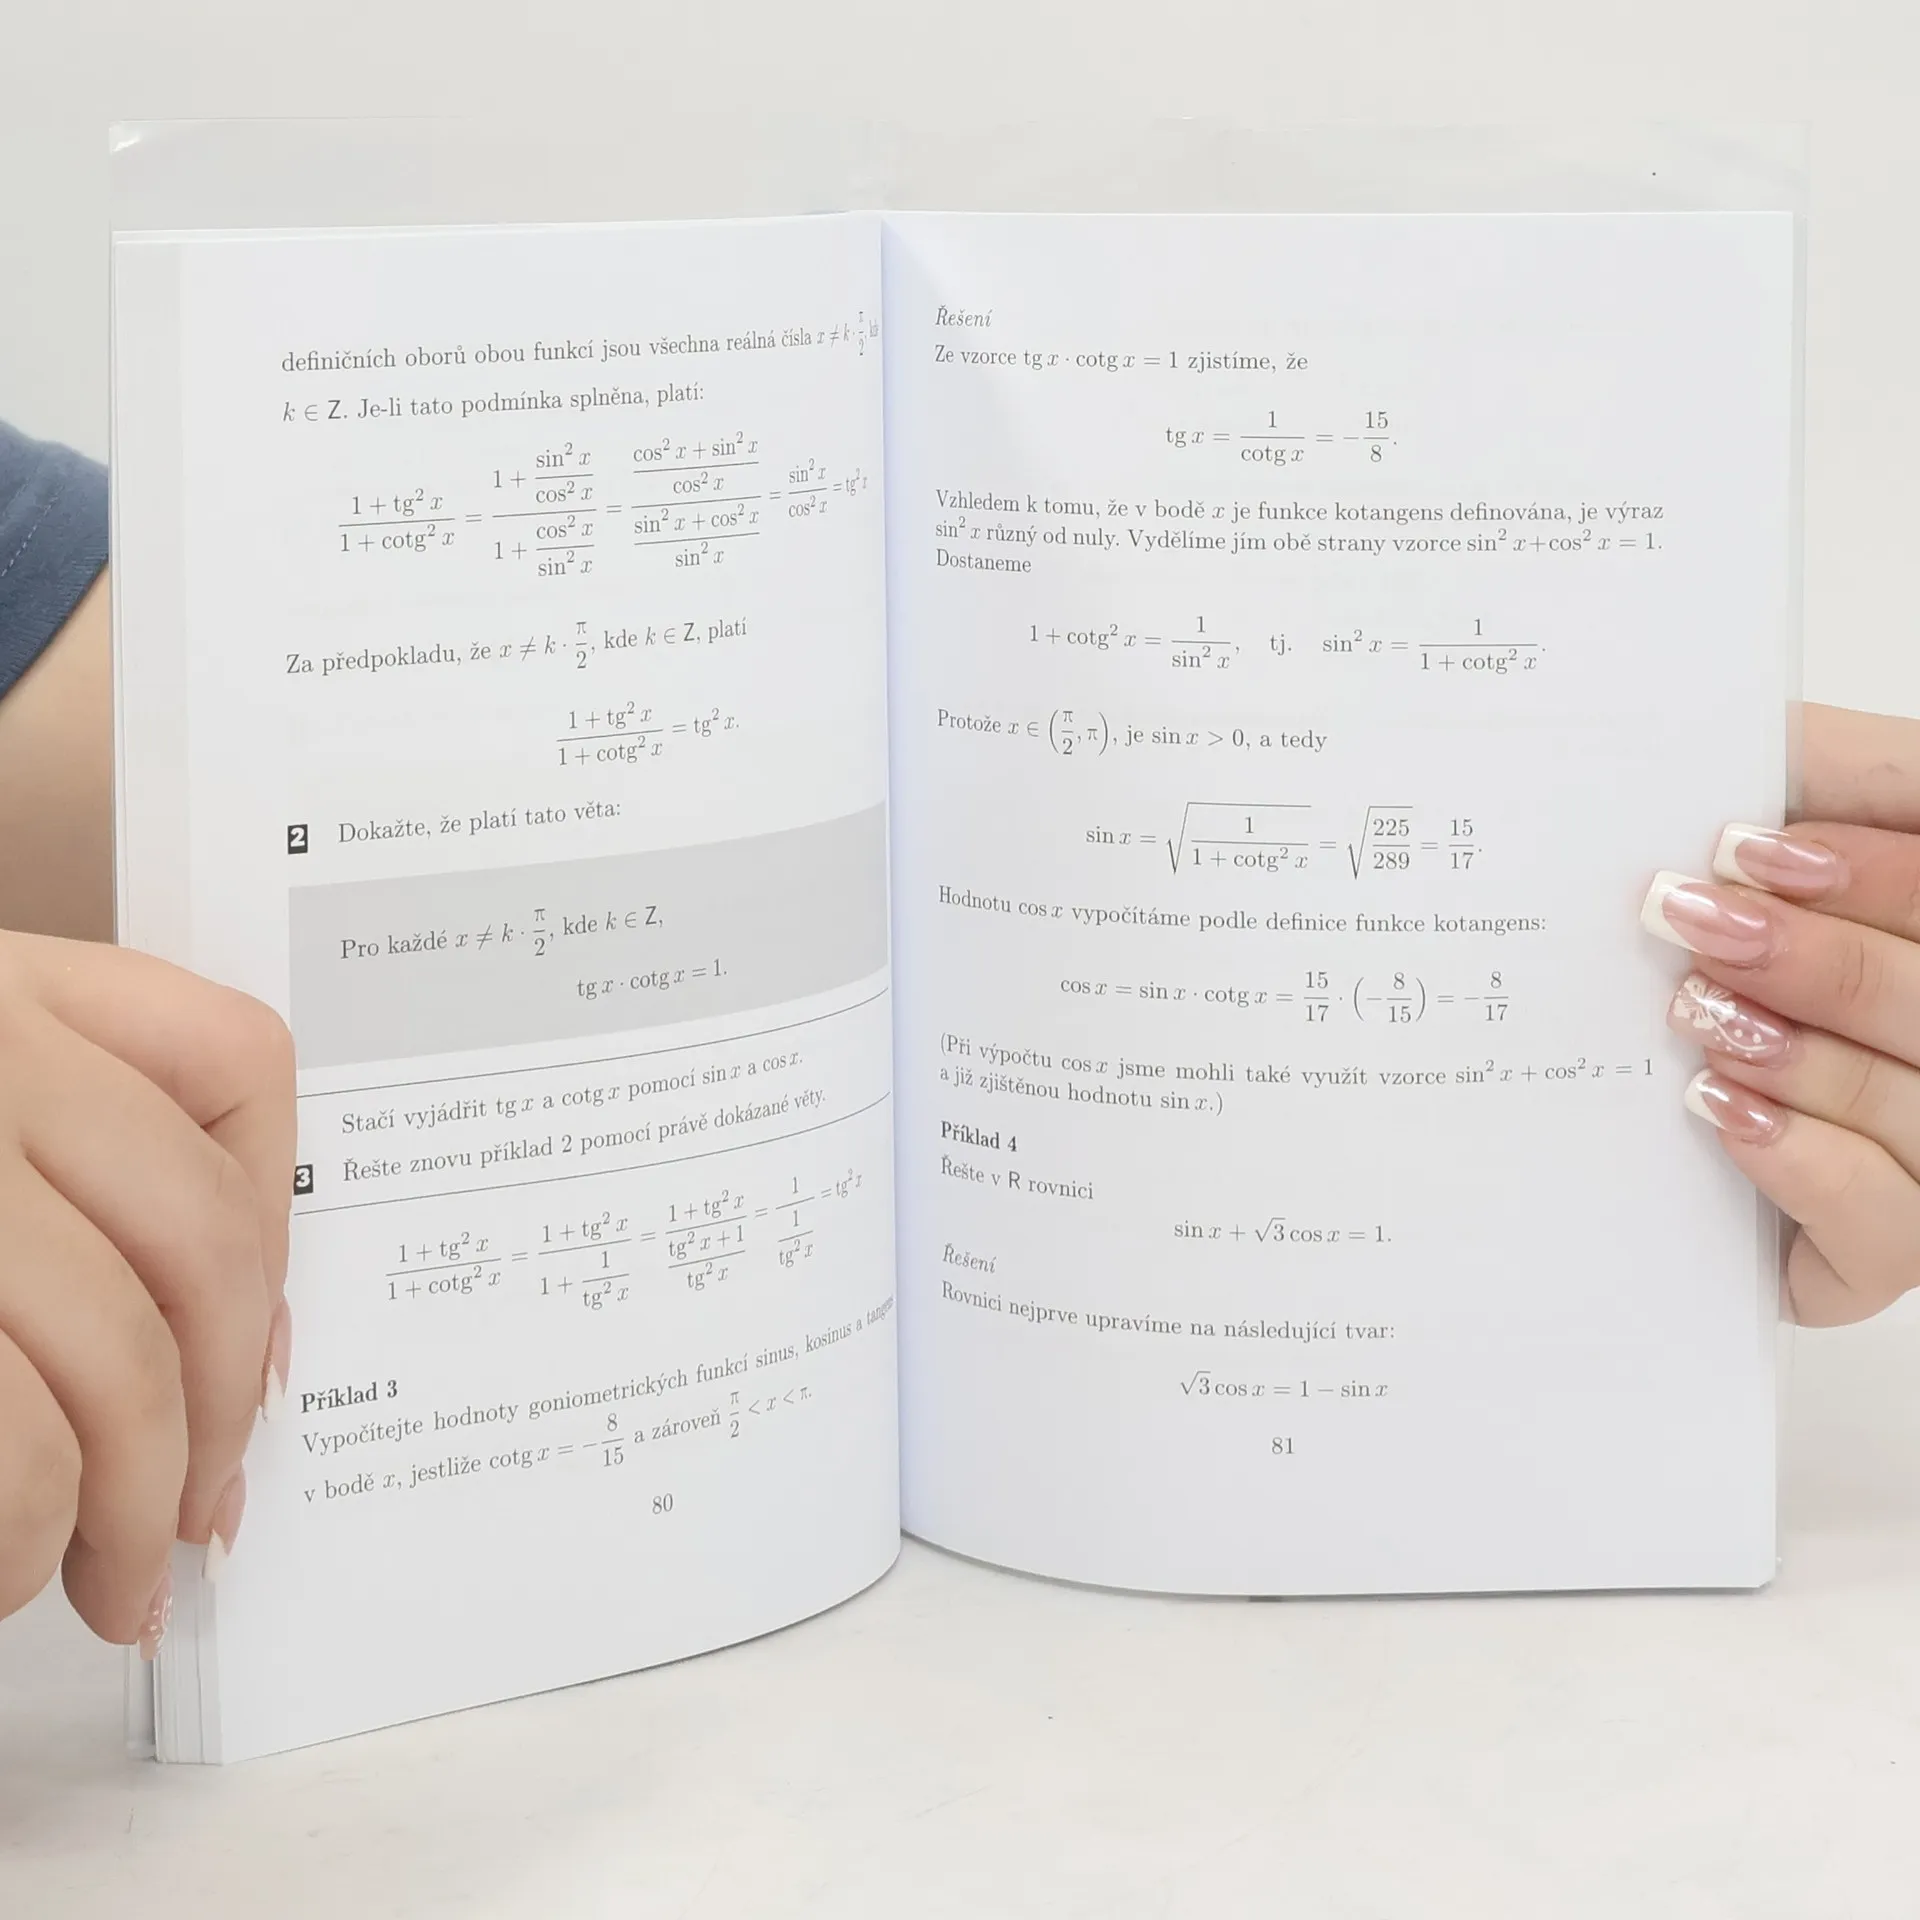 definičních oborů obou funkcí jsou všechna reálná čísla x ≠ k · π/2, kde
k ∈ Z. Je-li tato podmínka splněna, platí:
(1 + tg² x)/(1 + cotg² x) = (1 + sin² x/cos² x)/(1 + cos² x/sin² x) = ((cos² x + sin² x)/cos² x)/((sin² x + cos² x)/sin² x) = sin² x/cos² x = tg² x
Za předpokladu, že x ≠ k · π/2, kde k ∈ Z, platí
(1 + tg² x)/(1 + cotg² x) = tg² x.
2 Dokažte, že platí tato věta:
Pro každé x ≠ k · π/2, kde k ∈ Z,
tg x · cotg x = 1.
Stačí vyjádřit tg x a cotg x pomocí sin x a cos x.
3 Řešte znovu příklad 2 pomocí právě dokázané věty.
(1 + tg² x)/(1 + cotg² x) = (1 + tg² x)/(1 + 1/tg² x) = (1 + tg² x)/((tg² x + 1)/tg² x) = 1/(1/tg² x) = tg² x
Příklad 3
Vypočítejte hodnoty goniometrických funkcí sinus, kosinus a tangens
v bodě x, jestliže cotg x = −8/15 a zároveň π/2 < x < π.
80
Řešení
Ze vzorce tg x · cotg x = 1 zjistíme, že
tg x = 1/cotg x = −15/8.
Vzhledem k tomu, že v bodě x je funkce kotangens definována, je výraz
sin² x různý od nuly. Vydělíme jím obě strany vzorce sin² x+cos² x = 1.
Dostaneme
1 + cotg² x = 1/sin² x, tj. sin² x = 1/(1 + cotg² x).
Protože x ∈ (π/2, π), je sin x > 0, a tedy
sin x = √(1/(1 + cotg² x)) = √(225/289) = 15/17.
Hodnotu cos x vypočítáme podle definice funkce kotangens:
cos x = sin x · cotg x = 15/17 · (−8/15) = −8/17
(Při výpočtu cos x jsme mohli také využít vzorce sin² x + cos² x = 1
a již zjištěnou hodnotu sin x.)
Příklad 4
Řešte v R rovnici
sin x + √3 cos x = 1.
Řešení
Rovnici nejprve upravíme na následující tvar:
√3 cos x = 1 − sin x
81